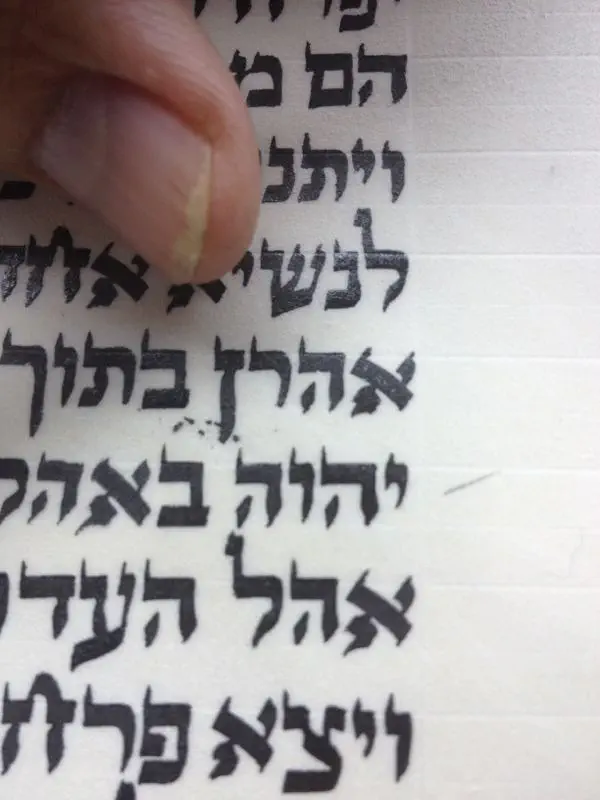 הם
ויתנ
לנשיא אחד
אהרן בתוך
יהוה באהל
אהל העד
ויצא פרח